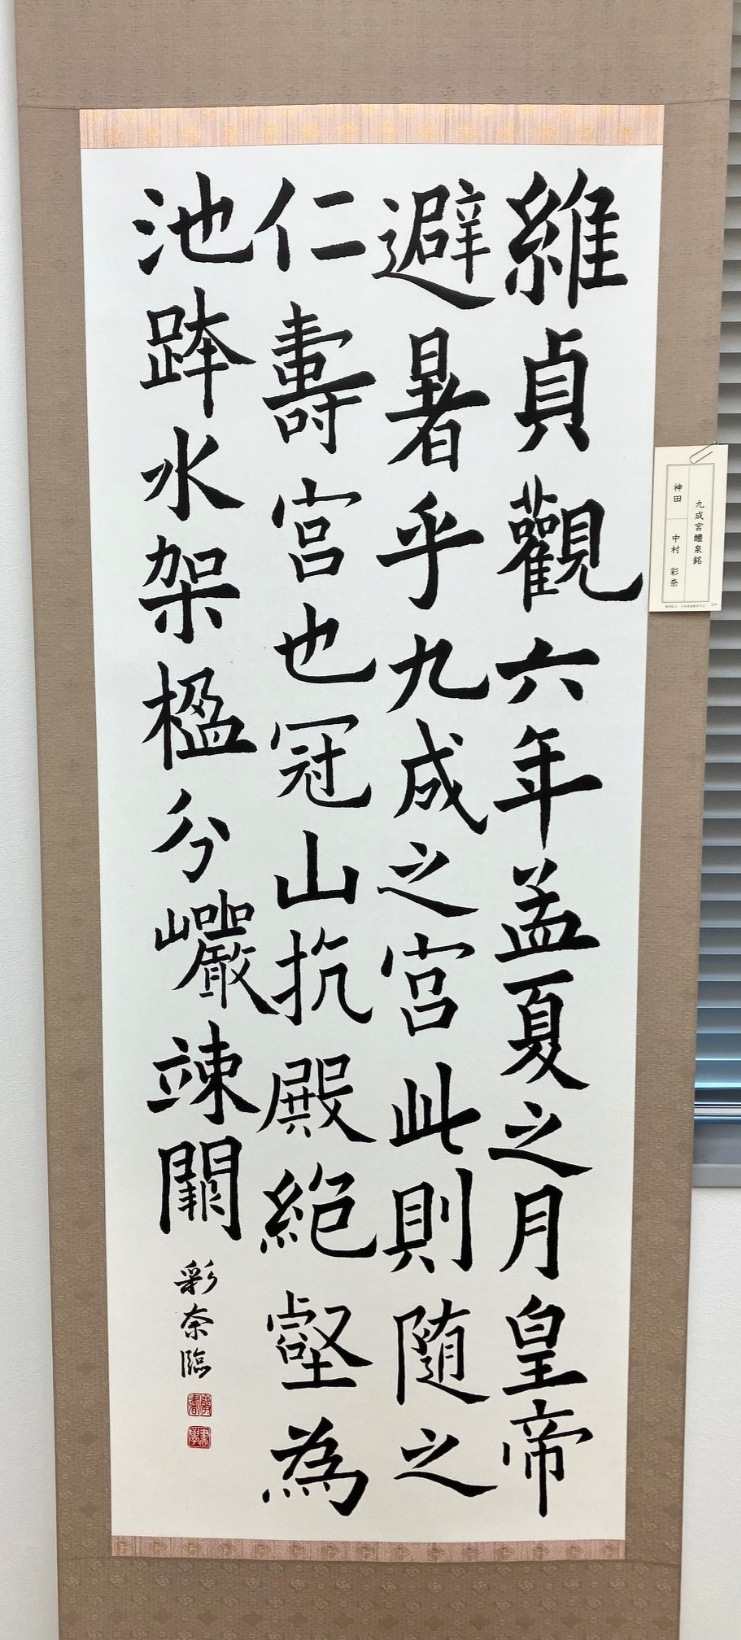 維貞觀六年孟夏之月皇帝
避暑乎九成之宮此則随之
仁壽宮也冠山抗殿絶壑為
池跨水架楹分巖竦闕
彩奈臨
九成宮醴泉銘
神田 中村 彩奈